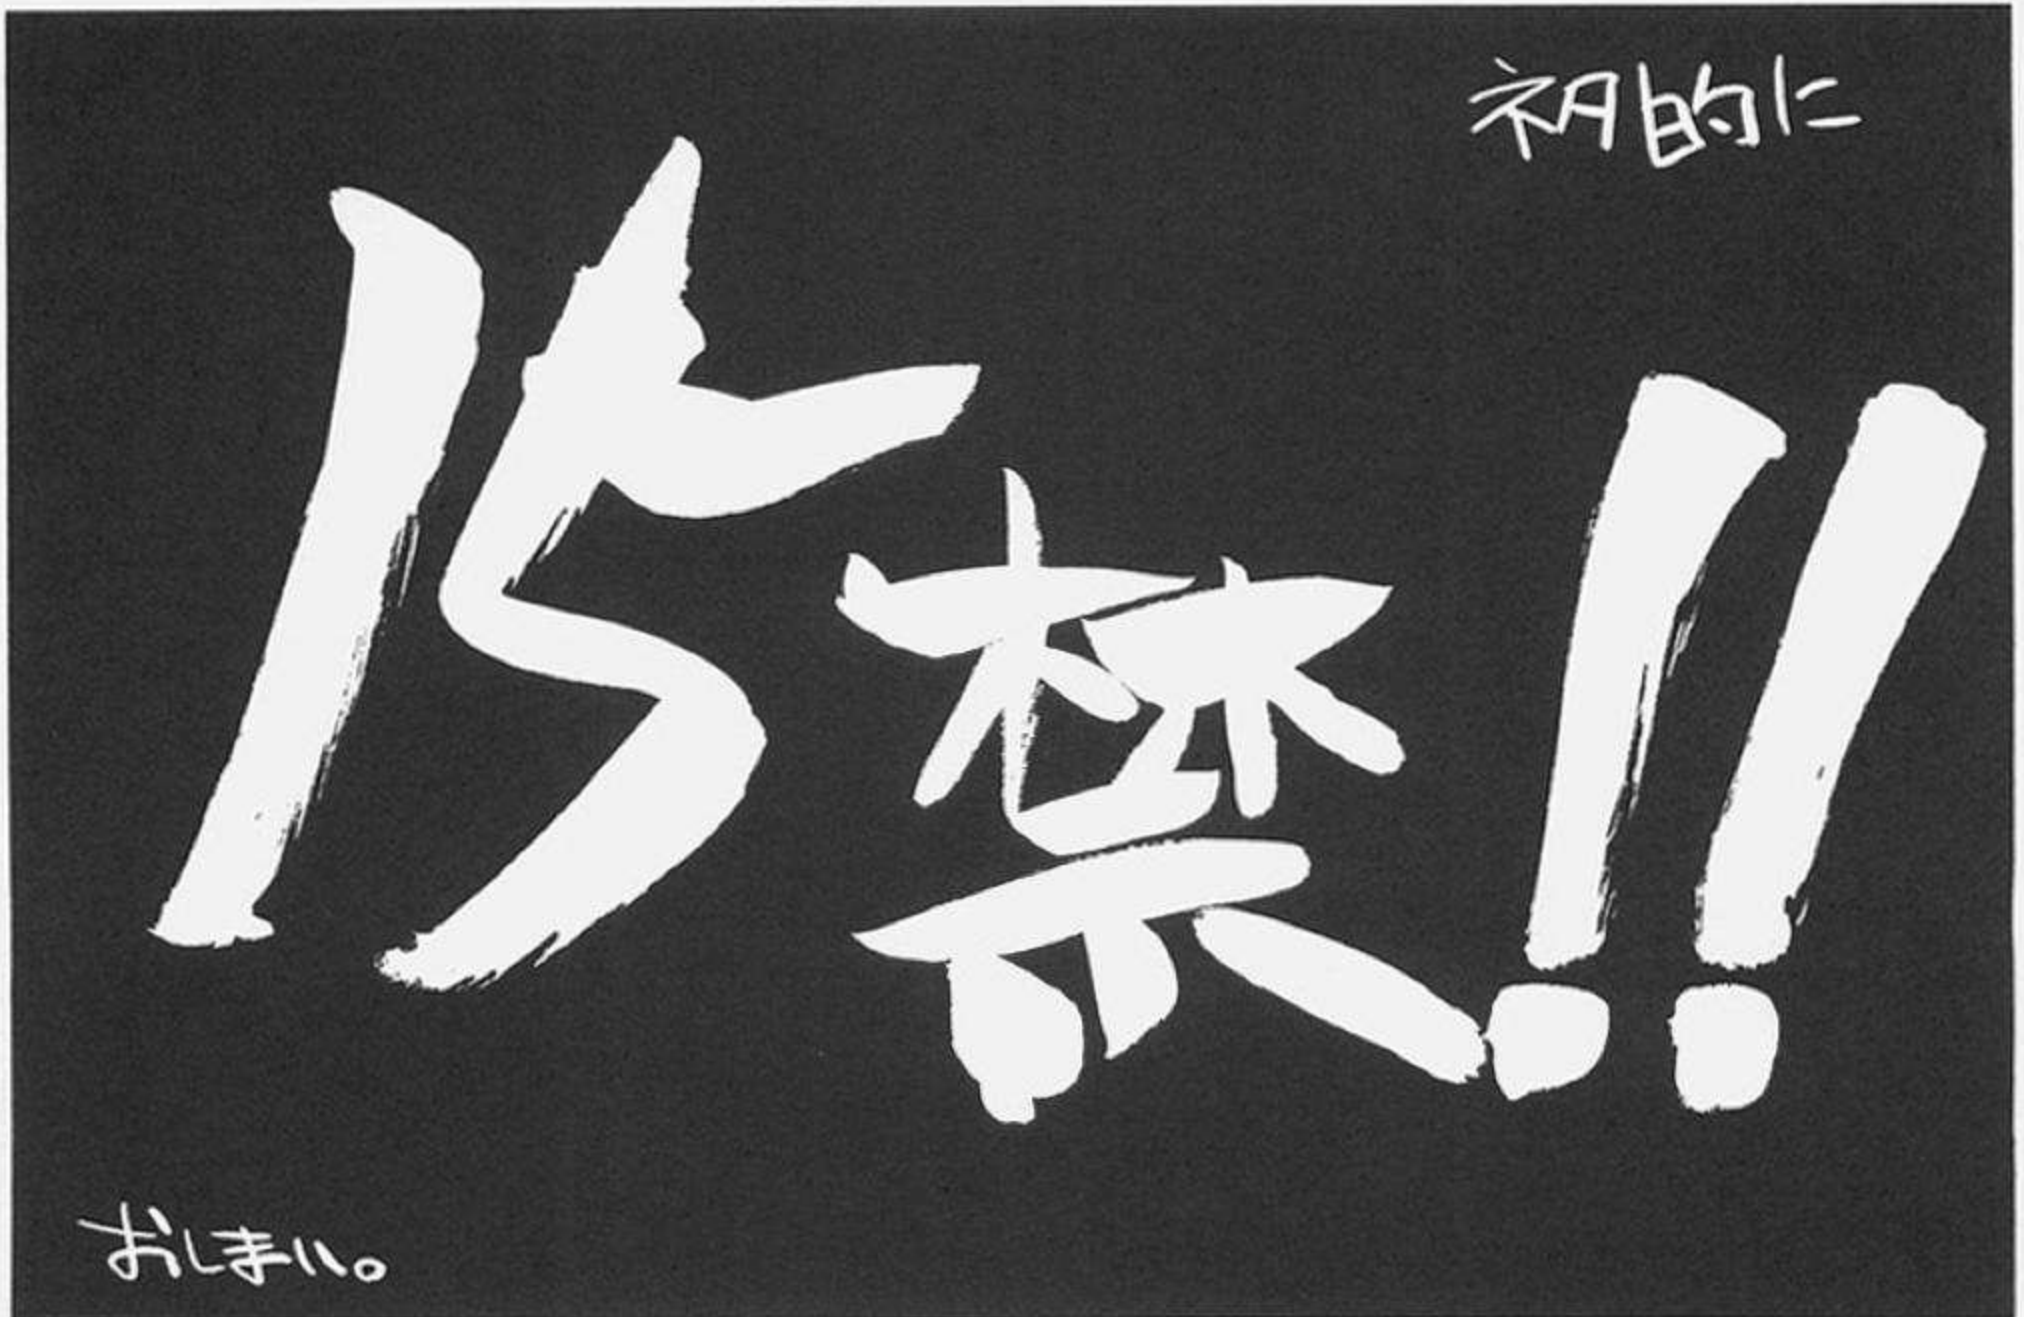 ネタ的に
15禁!!
おしまい。